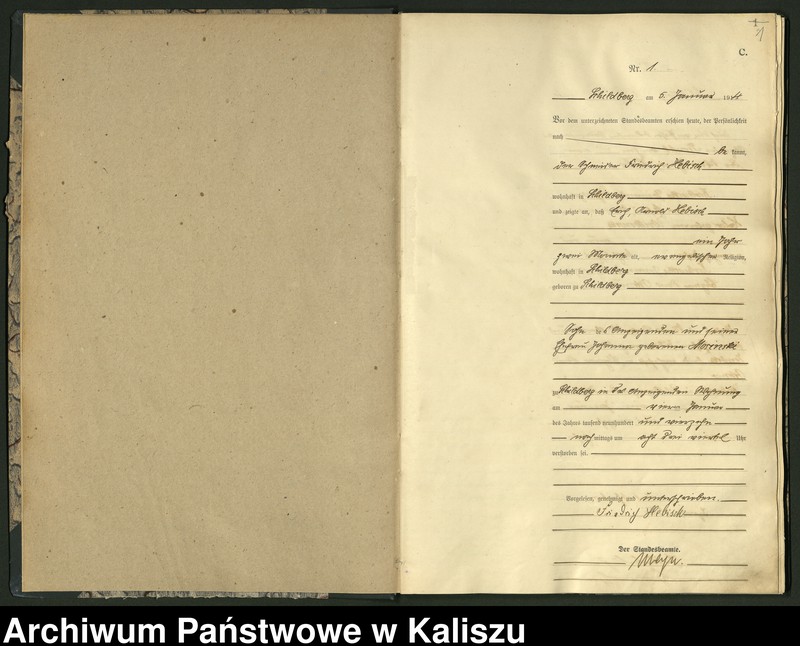 1
C.
Nr. 1.
Schildberg am 5. Januar 1914
Vor dem unterzeichneten Standesbeamten erschien heute, der Persönlichkeit
nach
be kannt,
der Schmied Friedrich Hebisch
wohnhaft in Schildberg
und zeigte an, daß Erich, Arnold Hebisch
ein Jahr
zwei Monate alt, evangelischer Religion,
wohnhaft in Schildberg
geboren zu Schildberg
Sohn des Anzeigenden und seiner
Ehefrau Johanna geborenen
zu Schildberg in des Anzeigenden Wohnung
am vier Januar
des Jahres tausend neunhundert und vierzehn
nach mittags um acht drei viertel Uhr
verstorben sei.
Vorgelesen, genehmigt und unterschrieben.
Friedrich Hebisch
Der Standesbeamte.
Archiwum Państwowe w Kaliszu